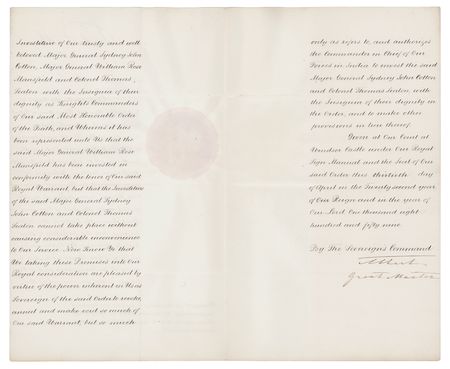 Investiture of Our trusty and well
beloved Major General Sydney John
Cotton, Major General William Rose
Mansfield and Colonel Thomas
Seaton with the Insignia of their
dignity as Knights Commanders
of Our said Most Honorable Order
of the Bath, and Whereas it has
been represented unto Us that the
said Major General William Rose
Mansfield has been invested in
conformity with the tenor of Our said
Royal Warrant, but that the Investiture
of the said Major General Sydney
John Cotton and Colonel Thomas
Seaton cannot take place without
causing considerable inconvenience
to Our Service Now Know Ye that
We taking these Premises into Our
Royal consideration are pleased by
virtue of the power inherent in Us as
Sovereign of the said Order to revoke,
annul and make void so much of
Our said Warrant, but so much
only as refers to, and authorizes
the Commander in Chief of Our
Forces in India to invest the said
Major General Sydney John Cotton
and Colonel Thomas Seaton with
the Insignia of their dignity in
the Order, and to make other
provisions in lieu thereof.
Given at Our Court at
Windsor Castle under Our Royal
Sign Manual and the Seal of Our
said Order this thirtieth day
of April in the Twenty second year
of Our Reign and in the year of
Our Lord One thousand eight
hundred and fifty nine.
By The Sovereign's Command
Albert
Great Master